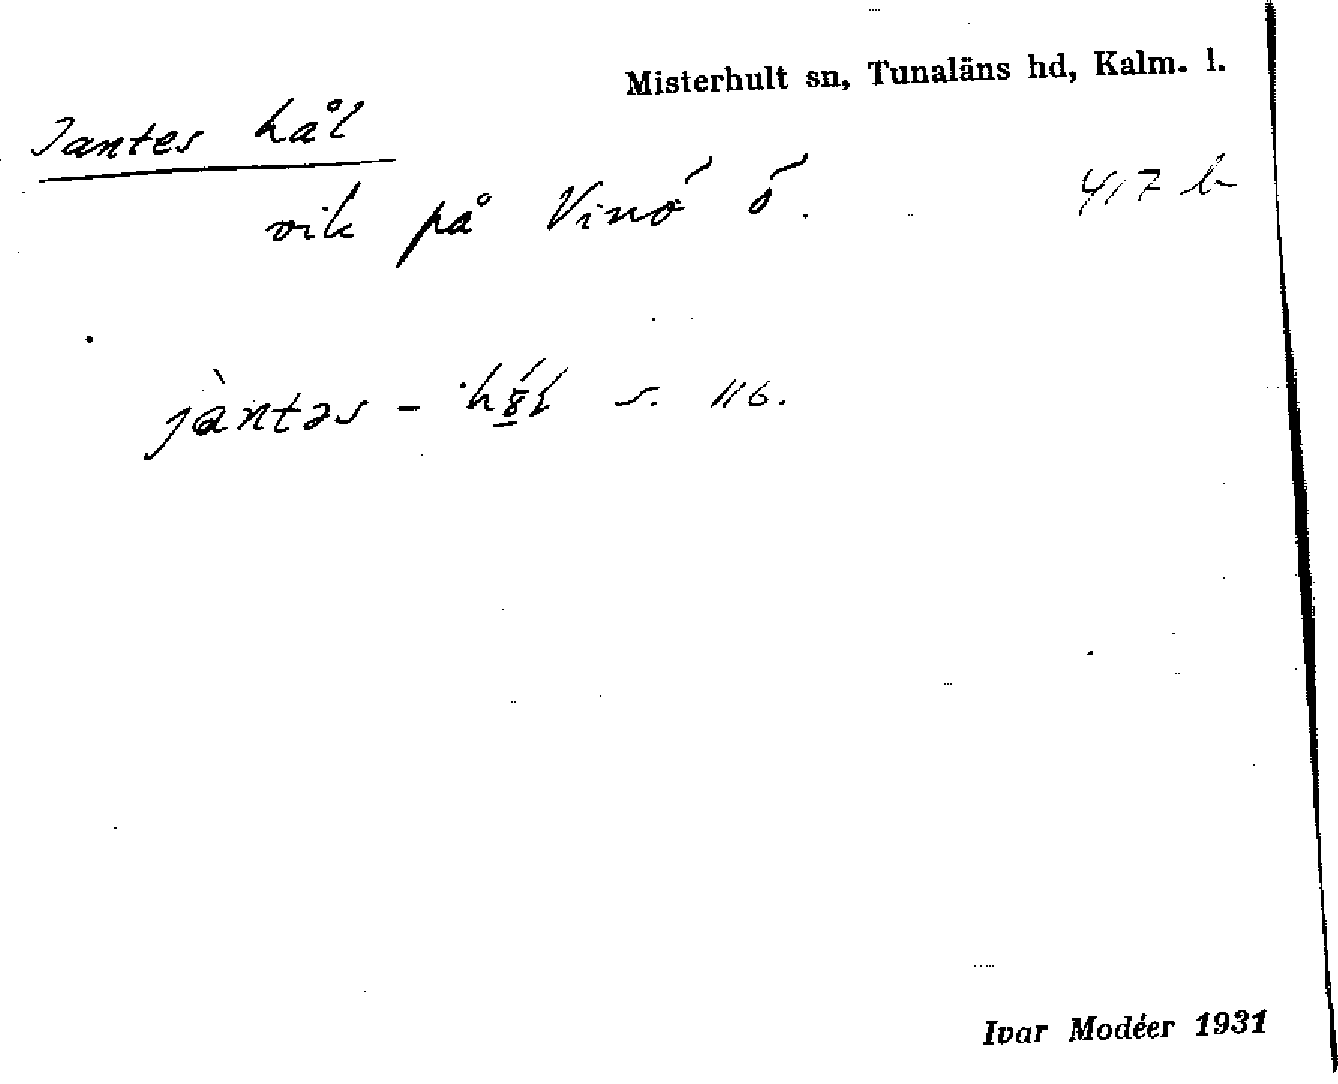 Misterhult sn, Tunaläns hd, Kalm. l.
Jantes hål
vik på Vinö ö. 417 b
jàntəs - s. 116.
Ivar Modéer 1931